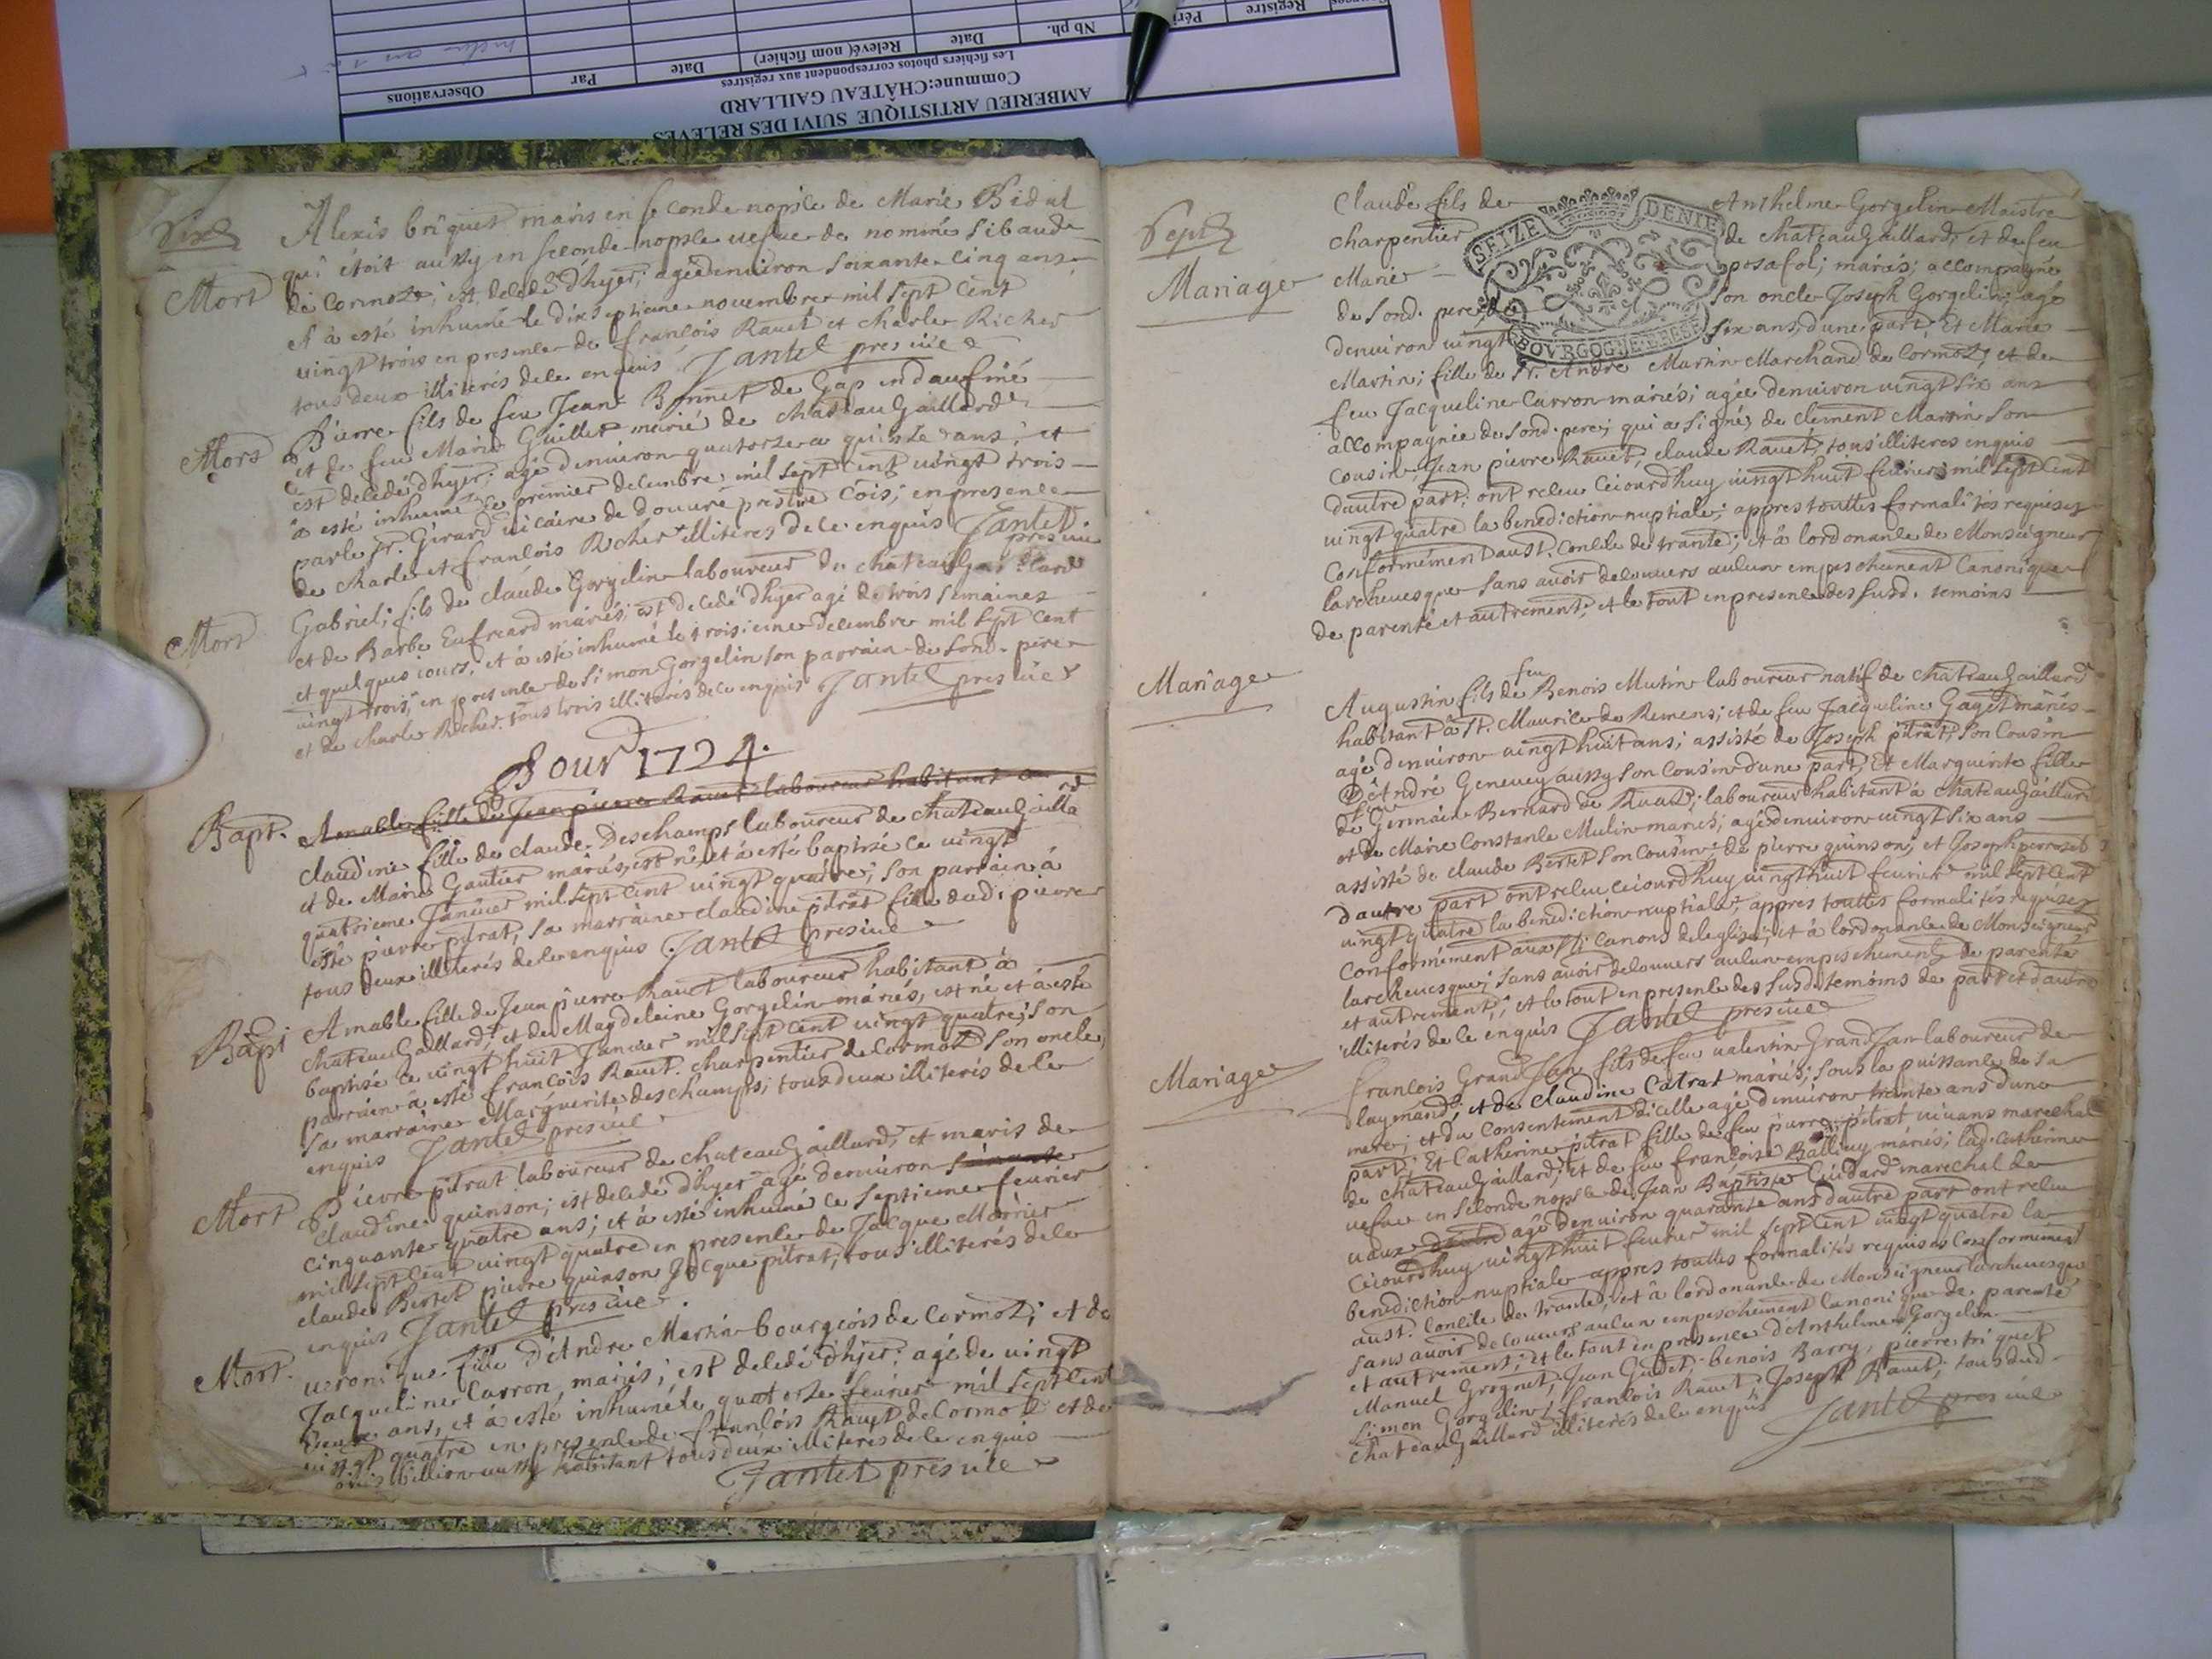 AMBERIEU ARTISTIQUE SUIVI DES RELEVES
Commune:CHÂTEAU GAILLARD
Les fichiers photos correspondent aux registres
Registre
Nb ph.
Date
Relevé( nom fichier)
Date
Par
Observations
Mort
Alexis briquet maris en seconde nopsce de Marie Bidal
qui étoit aussy en seconde nopsce uefue de nommé Sibaud
de Cormoz; est decedé d'hyer; agé denuiron soixante cinq ans
et à esté inhumé le dixseptieme nouembre mil sept cent
uingt trois en presence de françois Rauet et charle Richer
tous deux illiterés de ce enquis Jantet pres uic
Mort
Pierre fils de feu Jean Bonnet de Gap en daufiné
et de feu Marie Guillet mariés de chateauGaillard
est decedé d'hyer; agé denuiron quatorze a quinze ans; et
a esté inhumé le premier decembre mil sept cent uingt trois
par le sr. Girard uicaire de douure prestre cõis; en presence
de charle et françois Richer illiteres de ce enquis Jantet
pres uic
Mort
Gabriel; fils de claude Gorgelin laboureur de chateauGaillard
et de Barbe mariés; est decedé d'hyer agé de trois semaines
et quelques iours; et à esté inhumé le troisieme decembre mil sept cent
uingt trois; en presence de Simon Gorgelin son parrain de sond. pere
et de charle Richer tous trois illiterés de ce enquis Jantet pres uic
Pour 1724.
Bapt.
Amable fille de Jean pierre Rauet laboureur habitant a
claudine fille de claude Deschamps laboureur de chateauGaillard
et de Marie Gautier mariés, est né et à esté baptisé ce uingt
quatrieme Januier mil sept cent uingt quatre; son parrain à
esté pierre pitrat, sa marraine claudine pitrat fille dud. pierre
tous deux illiterés de ce enquis Jantet pres uic
Bapt
Amable fille de Jean pierre Rauet laboureur habitant à
chateauGaillard; et de Magdeleine Gorgelin mariés, est né et à esté
baptisé ce uingt huit Januier mil sept cent uingt quatre; son
parrain a esté françois Rauet charpentier de Cormoz son oncle,
sa marraine Marguerite deschamps; tous deux illiterés de ce
enquis Jantet pres uic
Mort
Pierre pitrat laboureur de chateauGaillard, et maris de
claudine quinson; est decedé d'hyer agé denuiron
cinquante quatre ans; et à esté inhumé ce septieme feurier
mil sept cent uingt quatre en presence de Jacque
claude Bertet pierre quinson Jacque pitrat, tous illiterés de ce
enquis Jantet pres uic
Mort.
ueronique fille d'Andre Martin bourgeois de Cormoz; et de
Jacqueline Carron, mariés; est decedé d'hyer; agé de uingt
ans, et à esté inhumé le quatorze feurier mil sept cent
uingt quatre en presence de françois Rauet de Cormoz et de
aussy habitant tous deux illiterés de ce enquis
Jantet pres uic
Sept
Mariage
Claude fils de Anthelme Gorgelin Maistre
charpentier de chateauGaillard; et de feu
Marie posafol; mariés; accompagné
de sond. pere, de son oncle Joseph Gorgelin; agé
denuiron uingt six ans, d'une part; Et Marie
SEIZE DENIE
BOVRGOGNE BRESSE
Martin; fille de sr. André Martin Marchand de Cormoz, et de
feu Jacqueline Carron mariés; agée denuiron uingt six ans
accompagnée de sond. pere; qui a signé; de clement Martin son
cousin; Jean pierre Rauet, claude Rauet, tous illiteres enquis
d'autre part: ont receu ceiourdhuy uingt huit feurier mil sept cent
uingt quatre la benediction nuptiale; appres touttes formalités requises
Conformément aust. Concile de trante; et à lordonance de Monseigneur
larcheuesque sans auoir decouuers aulcun empeschement Canonique
de parenté et autrement; et le tout en presence des susd. temoins
Mariage
Augustin fils de feu Benois Mutin laboureur natif de chateauGaillard
habitant à St. Maurice de Remens; et de feu Jacqueline Gaget mariés
agé denuiron uingt huit ans; assisté de Joseph pitrat, son Cousin
D'André Geneuey aussy son Cousin d'une part; Et Marguerite fille
de Germain Bernard de laboureur habitant à chateauGaillard
et de Marie Constance Mulin mariés; agé denuiron uingt six ans
assisté de claude Bertet son Cousin; de pierre quinson; et Joseph
d'autre part ont receu ceiourdhuy uingt huit feurier mil sept cent
uingt quatre la benediction nuptiale; appres touttes formalités requises
Conformément aux sts. Canons de leglise; et à lordonance de Monseigneur
larcheuesque; sans auoir decouuers aulcun empeschement de parenté
et autrement; et le tout en presence des susd. temoins de part et d'autre
illiterés de ce enquis Jantet pres uic
Mariage
françois GrandJan fils de feu ualentin GrandJan laboureur de
laymand, et de claudine Catrat mariés; sous la puissance de sa
mere; et du Consentement d'icelle agé denuiron trante ans d'une
part; Et Catherine pitrat fille de feu pierre pitrat uiuans marechal
de chateauGaillard; et de feu françoise Balliuy mariés; lad. Catherine
uefue en seconde nopsce de Jean Baptiste Cuidard marechal de
uaux agé denuiron quarante ans d'autre part ont receu
Ceiourdhuy uingt huit feurier mil sept cent uingt quatre la
benediction nuptiale appres touttes formalités requises Conformément
aust. Concile de trante; et à lordonance de Monseigneur larcheuesque
sans auoir decouuers aulcun empeschement Canonique de parenté
et autrement; et le tout en presence d'Anthelme Gorgelin
Manuel Grognet, Jean Gudet; benois Barry, pierre triquet
Simon Gorgelin; françois Rauet Joseph Rauet; tous dud.
chateauGaillard illiterés de ce enquis Jantet pres uic